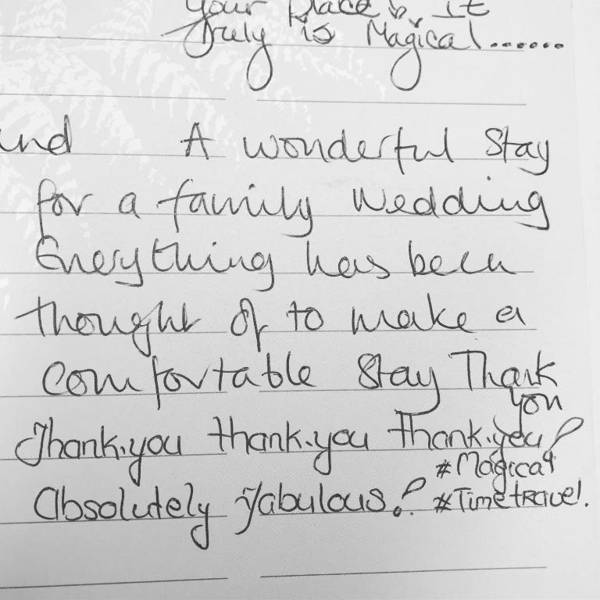 your place & it
Truly is Magical......
and A wonderful stay
for a family wedding
Everything has been
thought of to make a
comfortable stay Thank
you
Thank.you thank.you thank.you!
#Magical
absolutely fabulous! #Timetravel.